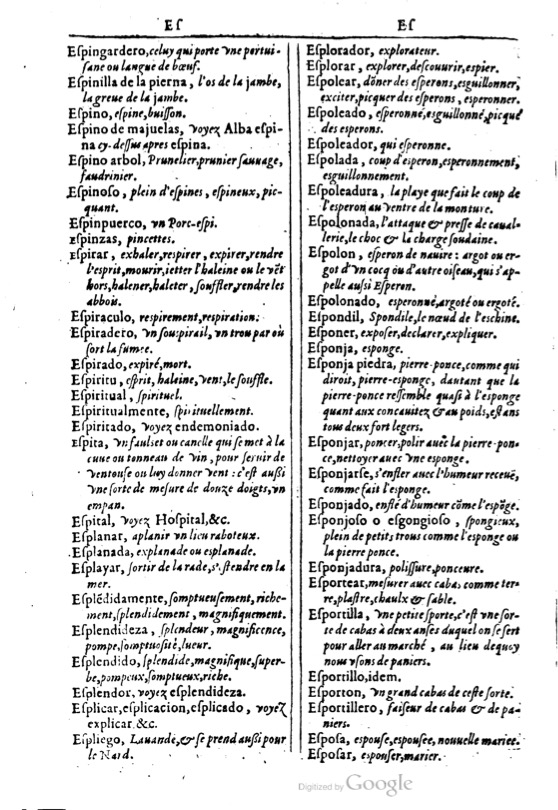 Eſ
Eſpingardero, celuy qui porte vne pertui-
ſane ou langue de bœuf.
Eſpinilla de la pierna, l'os de la jambe,
la greue de la jambe.
Eſpino, eſpine, buiſſon.
Eſpino de majuelas, voyez Alba eſpi-
na cy-deſſus apres eſpina.
Eſpino arbol, Prunelier, prunier ſauuage,
faudrinier.
Eſpinoſo, plein d'eſpines, eſpineux, pic-
quant.
Eſpinpuerco, vn Porc-eſpi.
Eſpinzas, pincettes.
Eſpirar, exhaler, reſpirer, expirer, rendre
l'eſprit, mourir, ietter l'haleine ou le vẽt
hors, halener, haleter, ſouffler, rendre les
abbois.
Eſpiraculo, reſpirement, reſpiration.
Eſpiradero, vn ſouſpirail, vn trou par où
ſort la fumee.
Eſpirado, expiré, mort.
Eſpiritu, eſprit, haleine, vent, le ſouffle.
Eſpiritual, ſpirituel.
Eſpiritualmente, ſpirituellement.
Eſpiritado, voyez endemoniado.
Eſpita, vn faulſet ou canelle qui ſe met à la
cuue ou tonneau de vin, pour ſeruir de
ventouſe ou luy donner vent: c'eſt auſſi
vne ſorte de meſure de douze doigts, vn
empan.
Eſpital, voyez Hoſpital, &c.
Eſplanar, aplanir vn lieu raboteux.
Eſplanada, explanade ou esplanade.
Eſplayar, ſortir de la rade, s'eſtendre en la
mer.
Eſplẽdidamente, ſomptueuſement, riche-
ment, ſplendidement, magnifiquement.
Eſplendideza, ſplendeur, magnificence,
pompe, ſomptuoſité, lueur.
Eſplendido, ſplendide, magnifique, ſuper-
be, pompeux, ſomptueux, riche.
Eſplendor, voyez eſplendideza.
Eſplicar, eſplicacion, eſplicado, voyez
explicar, &c.
Eſpliego, Lauande, & ſe prend auſſi pour
le Nard.
Eſ
Eſplorador, explorateur.
Eſplorar, explorer, deſcouurir, eſpier.
Eſpolear, dõner des eſperons, esguillonner,
exciter, picquer des eſperons, eſperonner.
Eſpoleado, eſperonné, esguillonné, picqué
des eſperons.
Eſpoleador, qui eſperonne.
Eſpolada, coup d'eſperon, eſperonnement,
esguillonnement.
Eſpoleadura, la playe que fait le coup de
l'eſperon au ventre de la monture.
Eſpolonada, l'attaque & preſſe de caual-
lerie, le choc & la charge ſoudaine.
Eſpolon, eſperon de nauire: argot ou er-
got d'vn cocq ou d'autre oiſeau, qui s'ap-
pelle auſſi Eſperon.
Eſpolonado, eſperonné, argoté ou ergoté.
Eſpondil, Spondile, le nœud de l'eſchine.
Eſponer, expoſer, declarer, expliquer.
Eſponja, eſponge.
Eſponja piedra, pierre-ponce, comme qui
diroit, pierre-eſponge, dautant que la
pierre-ponce reſſemble quaſi à l'eſponge
quant aux concauitez & au poids, eſtans
tous deux fort legers.
Eſponjar, poncer, polir auec la pierre-pon-
ce, nettoyer auec vne eſponge.
Eſponjarſe, s'enfler auec l'humeur receuë,
comme fait l'eſponge.
Eſponjado, enflé d'humeur cõme l'eſpõge.
Eſponjoſo o eſgongioſo, ſpongieux,
plein de petits trous comme l'eſponge ou
la pierre ponce.
Eſponjadura, poliſſure, ponceure.
Eſportear, meſurer auec cabas comme ter-
re, plaſtre, chaulx & ſable.
Eſportilla, vne petite ſporte, c'eſt vne ſor-
te de cabas à deux anſes duquel on ſe ſert
pour aller au marché, au lieu dequoy
nous vſons de paniers.
Eſportillo, idem.
Eſporton, vn grand cabas de ceſte ſorte.
Eſportillero, faiſeur de cabas & de pa-
niers.
Eſpoſa, eſpouſe, eſpouſee, nouuelle mariee.
Eſpoſar, eſpouſer, marier.
Digitized by Google